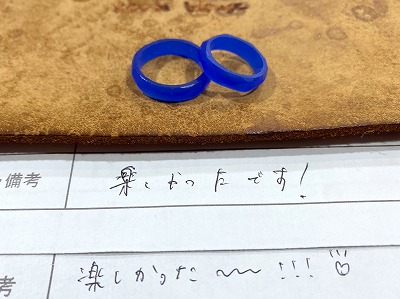 備考 楽しかったです!
考 楽しかった〜〜!!!